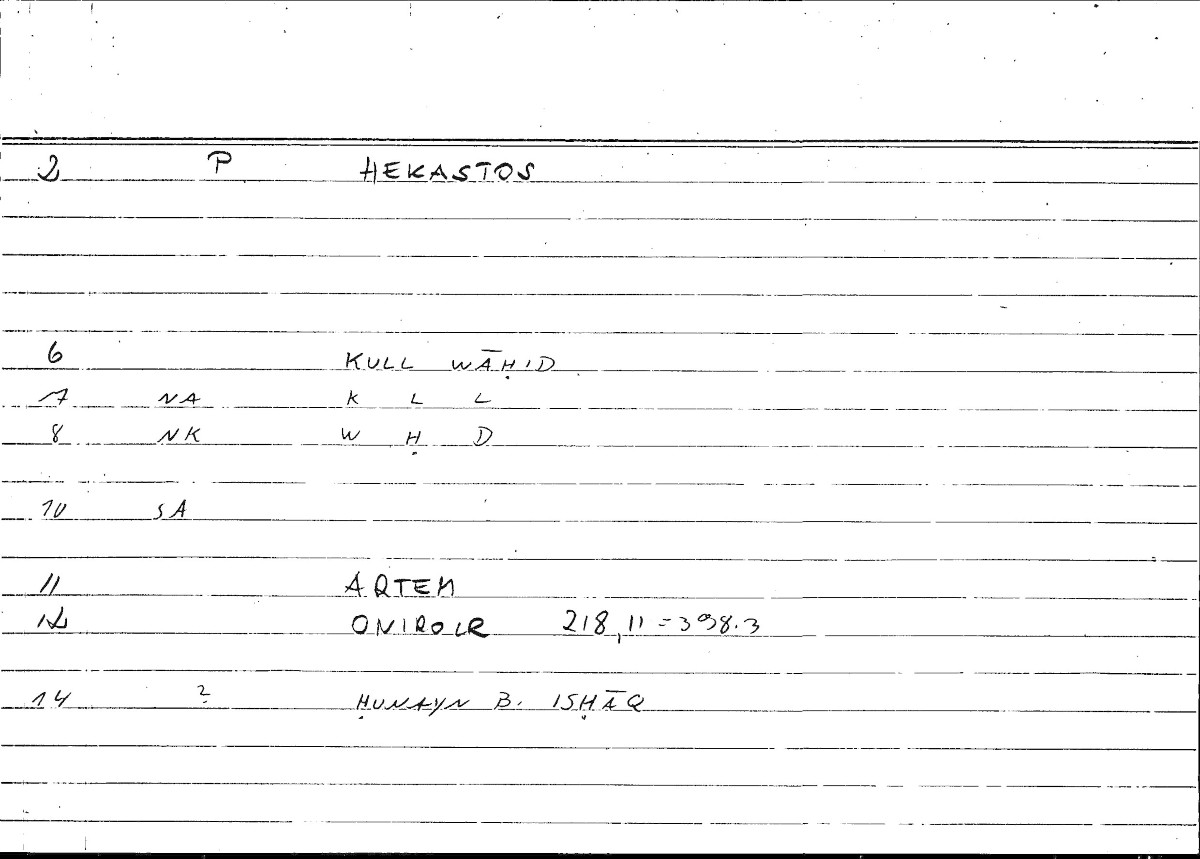 2 P HEKASTOS
6 KULL WĀḤID
7 NA K L L
8 NK W Ḥ D
10 SA
11 ARTEM
12 ONIROCR 218,11=398.3
14 ? ḤUNAYN B. ISḤĀQ